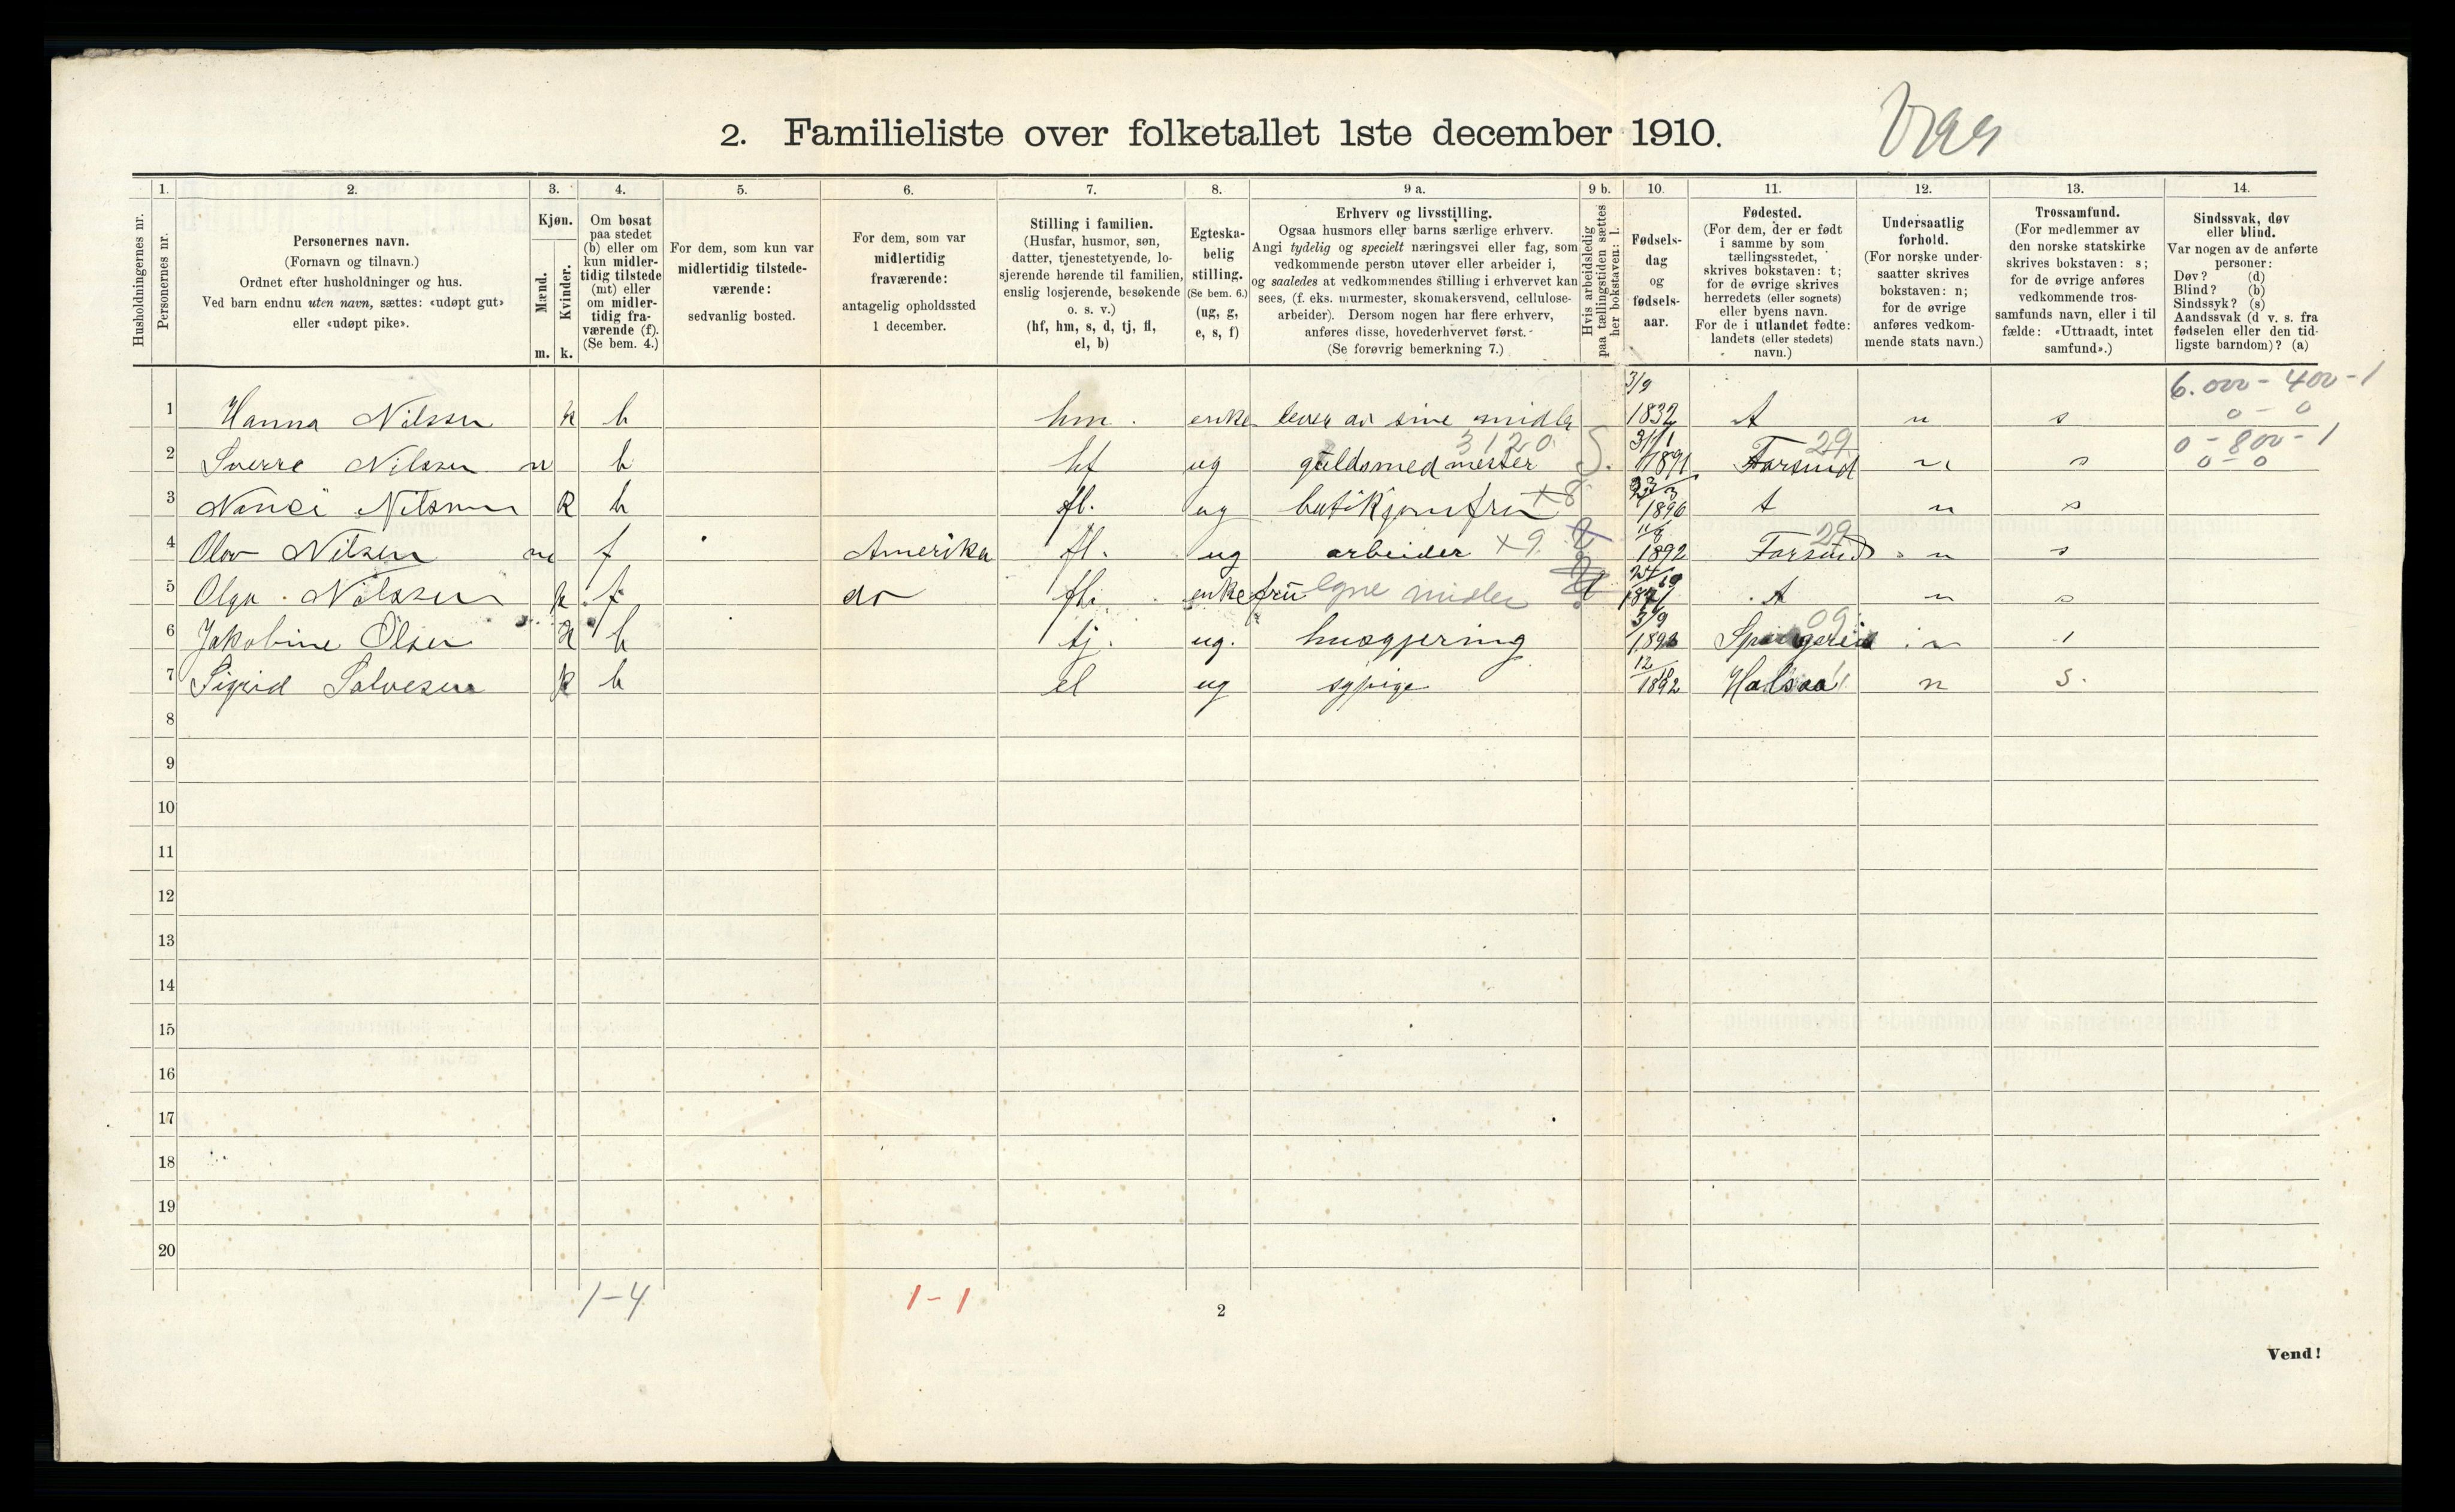 2. Familieliste over folketallet 1ste december 1910.
1. 2. 3. 4. 5. 6. 7. 8. 9 a. 9 b. 10. 11. 12. 13. 14.
Husholdningernes nr.
Personernes nr.
Personernes navn.
(Fornavn og tilnavn.)
Ordnet efter husholdninger og hus.
Ved barn endnu uten navn, sættes: «udøpt gut»
eller «udøpt pike».
Kjøn.
Mænd.
Kvinder.
m. k.
Om bosat
paa stedet
(b) eller om
kun midler-
tidig tilstede
(mt) eller
om midler-
tidig fra-
værende (f).
(Se bem. 4.)
For dem, som kun var
midlertidig tilstede-
værende:
sedvanlig bosted.
For dem, som var
midlertidig
fraværende:
antagelig opholdssted
1 december.
Stilling i familien.
(Husfar, husmor, søn,
datter, tjenestetyende, lo-
sjerende hørende til familien,
enslig losjerende, besøkende
o. s. v.)
(hf, hm, s, d, tj, fl,
el, b)
Egteska-
belig
stilling.
(Se bem. 6.)
(ug, g,
e, s, f)
Erhverv og livsstilling.
Ogsaa husmors eller barns særlige erhverv.
Angi tydelig og specielt næringsvei eller fag, som
vedkommende person utøver eller arbeider i,
og saaledes at vedkommendes stilling i erhvervet kan
sees, (f. eks. murmester, skomakersvend, cellulose-
arbeider). Dersom nogen har flere erhverv,
anføres disse, hovederhvervet først.
(Se forøvrig bemerkning 7.)
Hvis arbeidsledig
paa tællingstiden sættes
her bokstaven: l.
Fødsels-
dag
og
fødsels-
aar.
Fødested.
(For dem, der er født
i samme by som
tællingsstedet,
skrives bokstaven: t;
for de øvrige skrives
herredets (eller sognets)
eller byens navn.
For de i utlandet fødte:
landets (eller stedets)
navn.)
Undersaatlig
forhold.
(For norske under-
saatter skrives
bokstaven: n;
for de øvrige
anføres vedkom-
mende stats navn.)
Trossamfund.
(For medlemmer av
den norske statskirke
skrives bokstaven: s;
for de øvrige anføres
vedkommende tros-
samfunds navn, eller i til
fælde: «Uttraadt, intet
samfund».)
Sindssvak, døv
eller blind.
Var nogen av de anførte
personer:
Døv? (d)
Blind? (b)
Sindssyk? (s)
Aandssvak (d. v. s. fra
fødselen eller den tid-
ligste barndom)? (a)
6.000 - 400 - 1
0 - 0
1 Hanna Nilssen k b hm. enke lever av sine midler 3/9 1832 t n s
0 - 800 - 1
0 - 0
2 Sverre Nilssen m b hf ug guldsmedmester 3120 5. 31/1 1891 Farsund 29 n s
3 Nanci Nilssen k b fl. ug butikjomfru x 8 1890 t n s
4 Olav Nilsen m f Amerika fl. ug arbeider x 9. 1892 Farsund 29 n s
5 Olga Nilssen k f do fl. enkefru egne midler t n s
6 Jakobine Olsen k b tj. ug. husgjerning 3/9 Spangereid 09 n
7 Sigrid Salvesen k b el ug sypige 1892 Halsaa n s.
8
9
10
11
12
13
14
15
16
17
18
19
20
1-4 1-1
2
Vend!